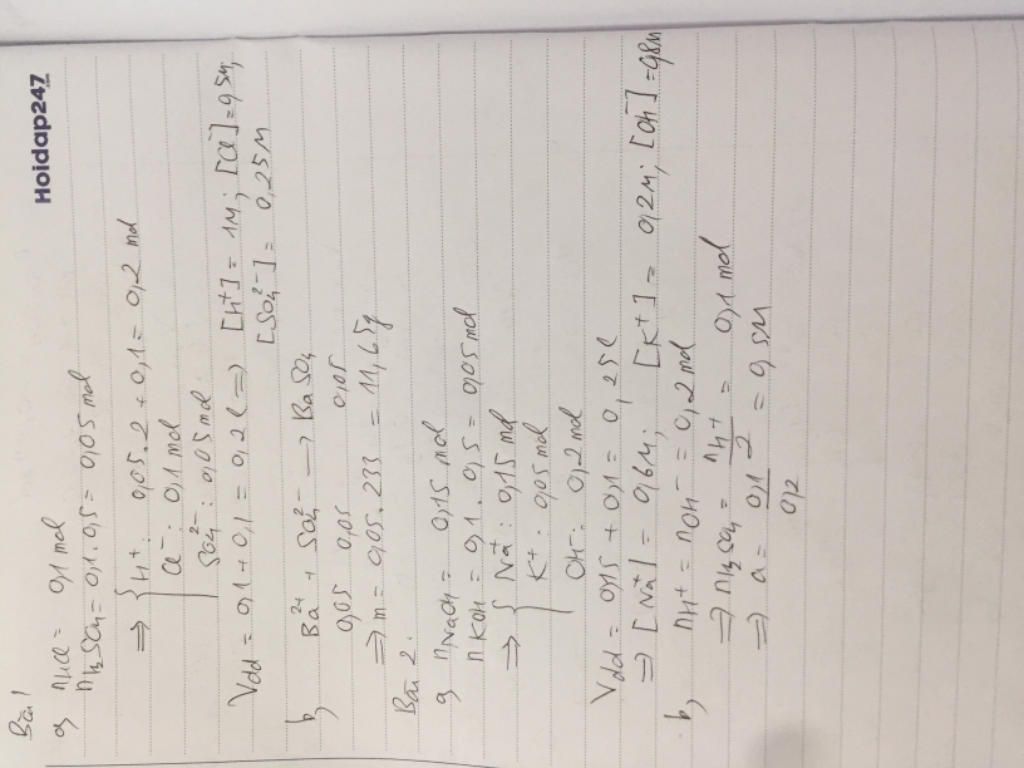 Hoidap247
Bài 1
a) nHCl = 0,1 mol
nH₂SO₄ = 0,1.0,5 = 0,05 mol
⇒ { H⁺: 0,05.2 + 0,1 = 0,2 mol
Cl⁻: 0,1 mol
SO₄²⁻: 0,05 mol
Vdd = 0,1 + 0,1 = 0,2 l ⇒ [H⁺] = 1M; [Cl⁻] = 0,5M;
[SO₄²⁻] = 0,25M
b) Ba²⁺ + SO₄²⁻ → BaSO₄
0,05 0,05 0,05
⇒ m = 0,05.233 = 11,65g
Bài 2.
a) nNaOH = 0,15 mol
nKOH = 0,1.0,5 = 0,05 mol
⇒ { Na⁺: 0,15 mol
K⁺: 0,05 mol
OH⁻: 0,2 mol
Vdd = 0,15 + 0,1 = 0,25l
⇒ [Na⁺] = 0,6M; [K⁺] = 0,2M; [OH⁻] = 0,8M
b) nH⁺ = nOH⁻ = 0,2 mol
⇒ nH₂SO₄ = nH⁺/2 = 0,1 mol
⇒ a = 0,1/0,2 = 0,5M